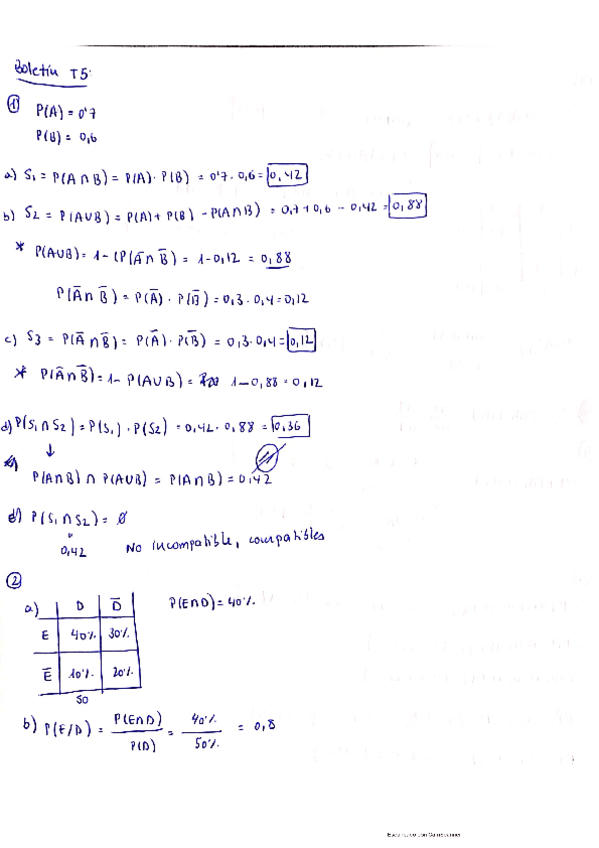 Boletín T5.
① P(A) = 0'7
P(B) = 0,6
a) S1 = P(A∩B) = P(A)·P(B) = 0'7·0,6 = 0,42
b) S2 = P(AUB) = P(A)+P(B) - P(A∩B) = 0,7+0,6 - 0,42 = 0,88
* P(AUB) = 1-(P(A̅∩B̅) = 1-0,12 = 0,88
P(A̅∩B̅) = P(A̅)·P(B̅) = 0,3·0,4 = 0,12
c) S3 = P(A̅∩B̅) = P(A̅)·P(B̅) = 0,3·0,4 = 0,12
* P(A̅∩B̅) = 1- P(AUB) = 1-0,88 = 0,12
d) P(S1∩S2) = P(S1)·P(S2) = 0,42·0,88 = 0,36
↓
P(A∩B) ∩ P(AUB) = P(A∩B) = 0,42
P(S1∩S2) = ∅
0,42 No incompatible, compatibles
②
a) D D̅ P(E∩D) = 40%.
E 40% 30%
E̅ 10% 20%
50
b) P(E/D) = P(E∩D) / P(D) = 40% / 50% = 0,8
Escaneado con CamScanner